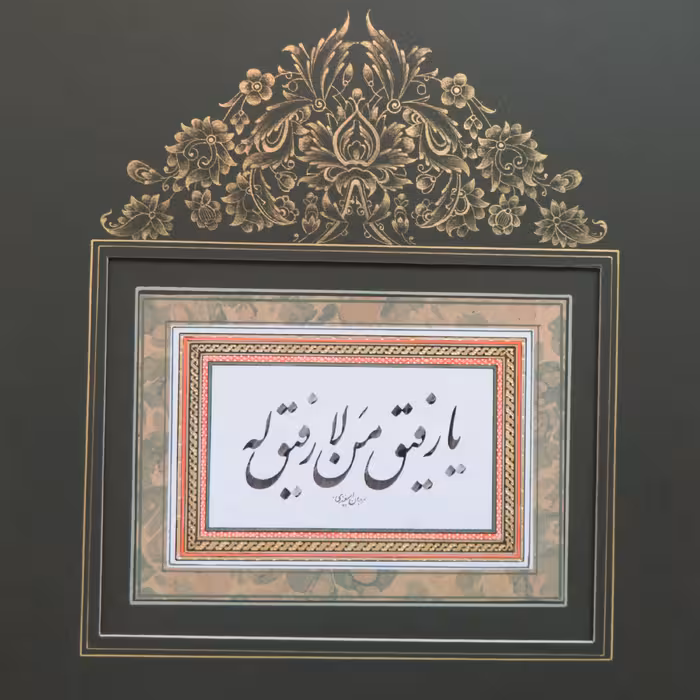 یا رفیق مَن لا رفیق له